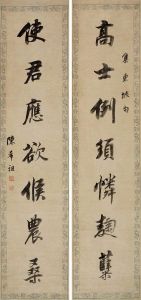 集東坡句
高士例須憐麴蘖
使君應欲候農桑
陳希祖